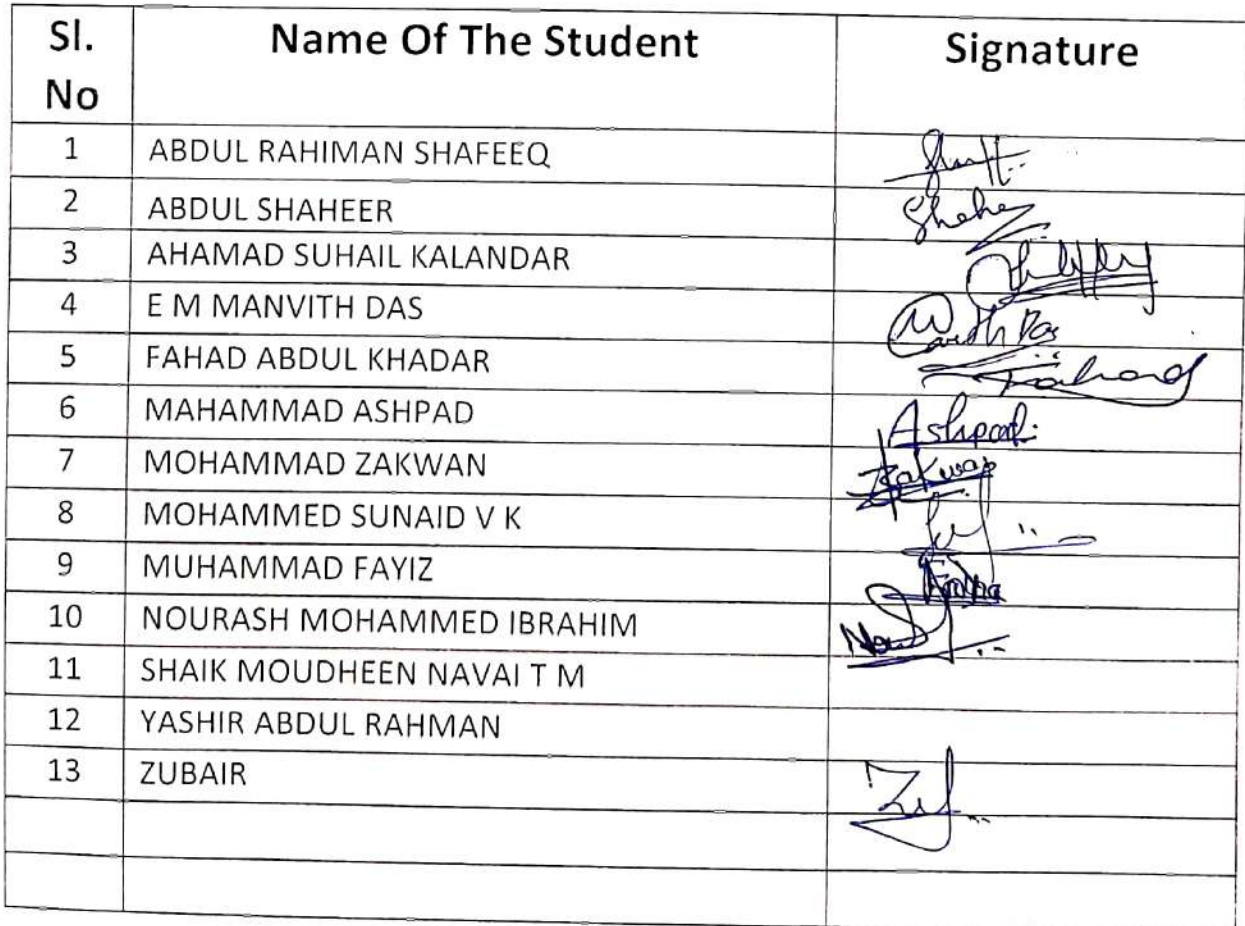 Sl. No Name Of The Student Signature
1 ABDUL RAHIMAN SHAFEEQ
2 ABDUL SHAHEER Shaheer
3 AHAMAD SUHAIL KALANDAR
4 E M MANVITH DAS Das
5 FAHAD ABDUL KHADAR Fahad
6 MAHAMMAD ASHPAD Ashpad
7 MOHAMMAD ZAKWAN Zakwan
8 MOHAMMED SUNAID V K
9 MUHAMMAD FAYIZ
10 NOURASH MOHAMMED IBRAHIM
11 SHAIK MOUDHEEN NAVAI T M
12 YASHIR ABDUL RAHMAN
13 ZUBAIR